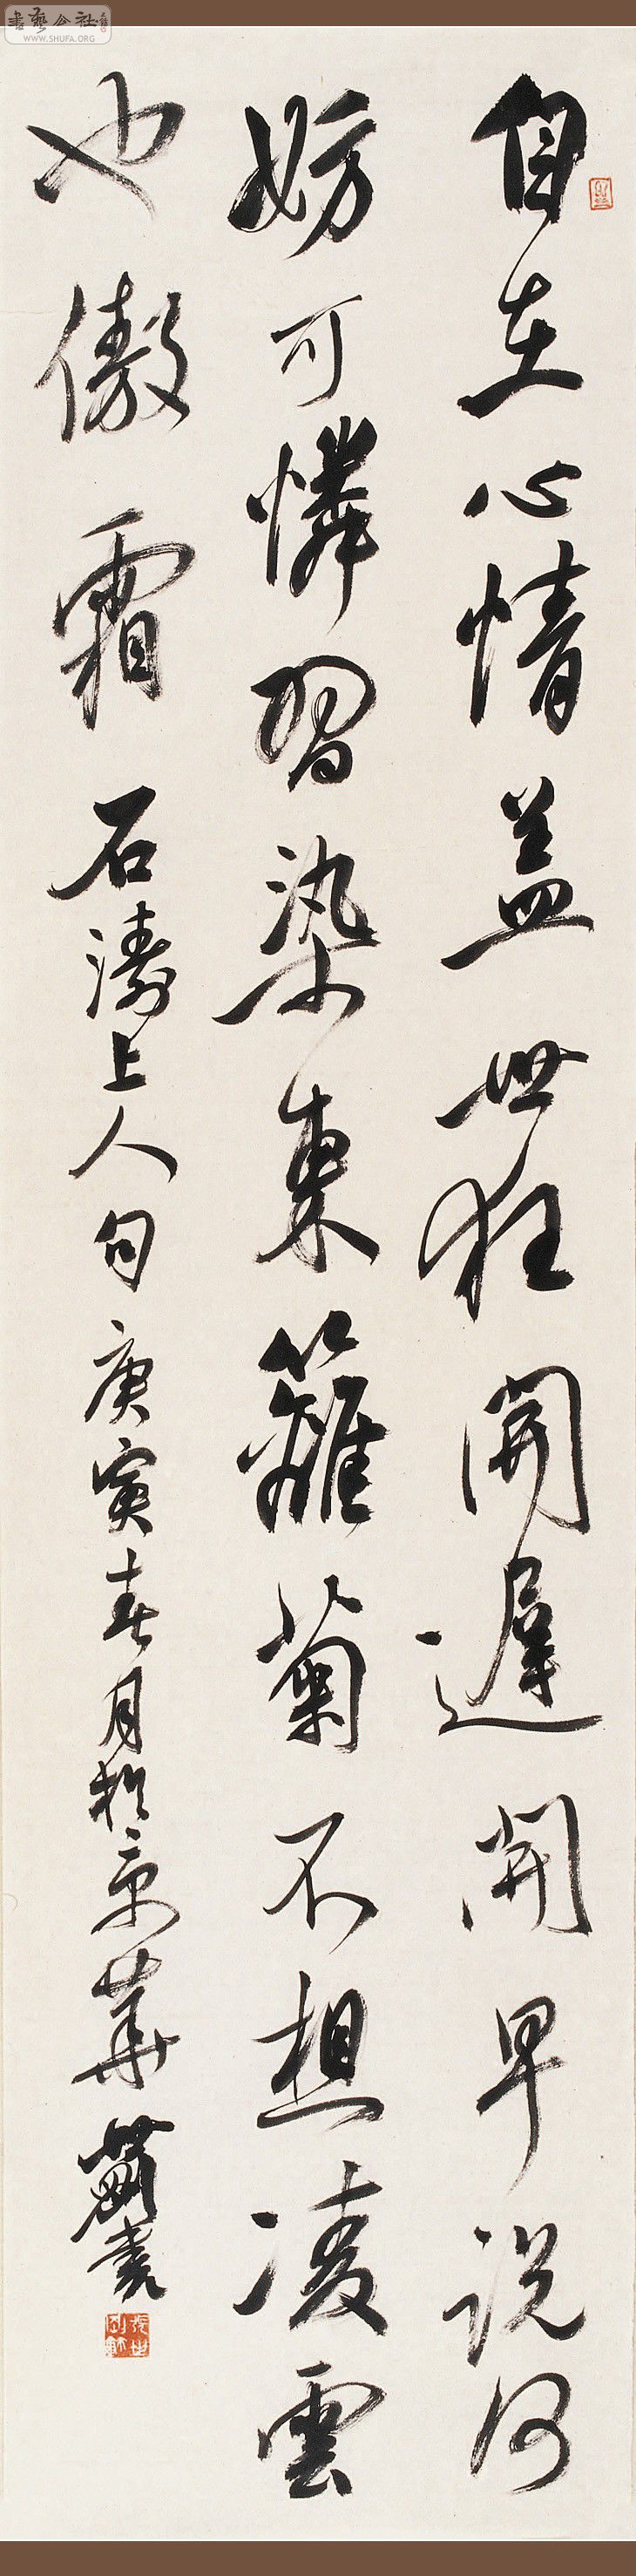 自在心情盖世狂開遲開早説何
妨可憐習染東籬菊不想凌雲
也傲霜
石濤上人句庚寅春月於京華
書藝公社
WWW.SHUFA.ORG